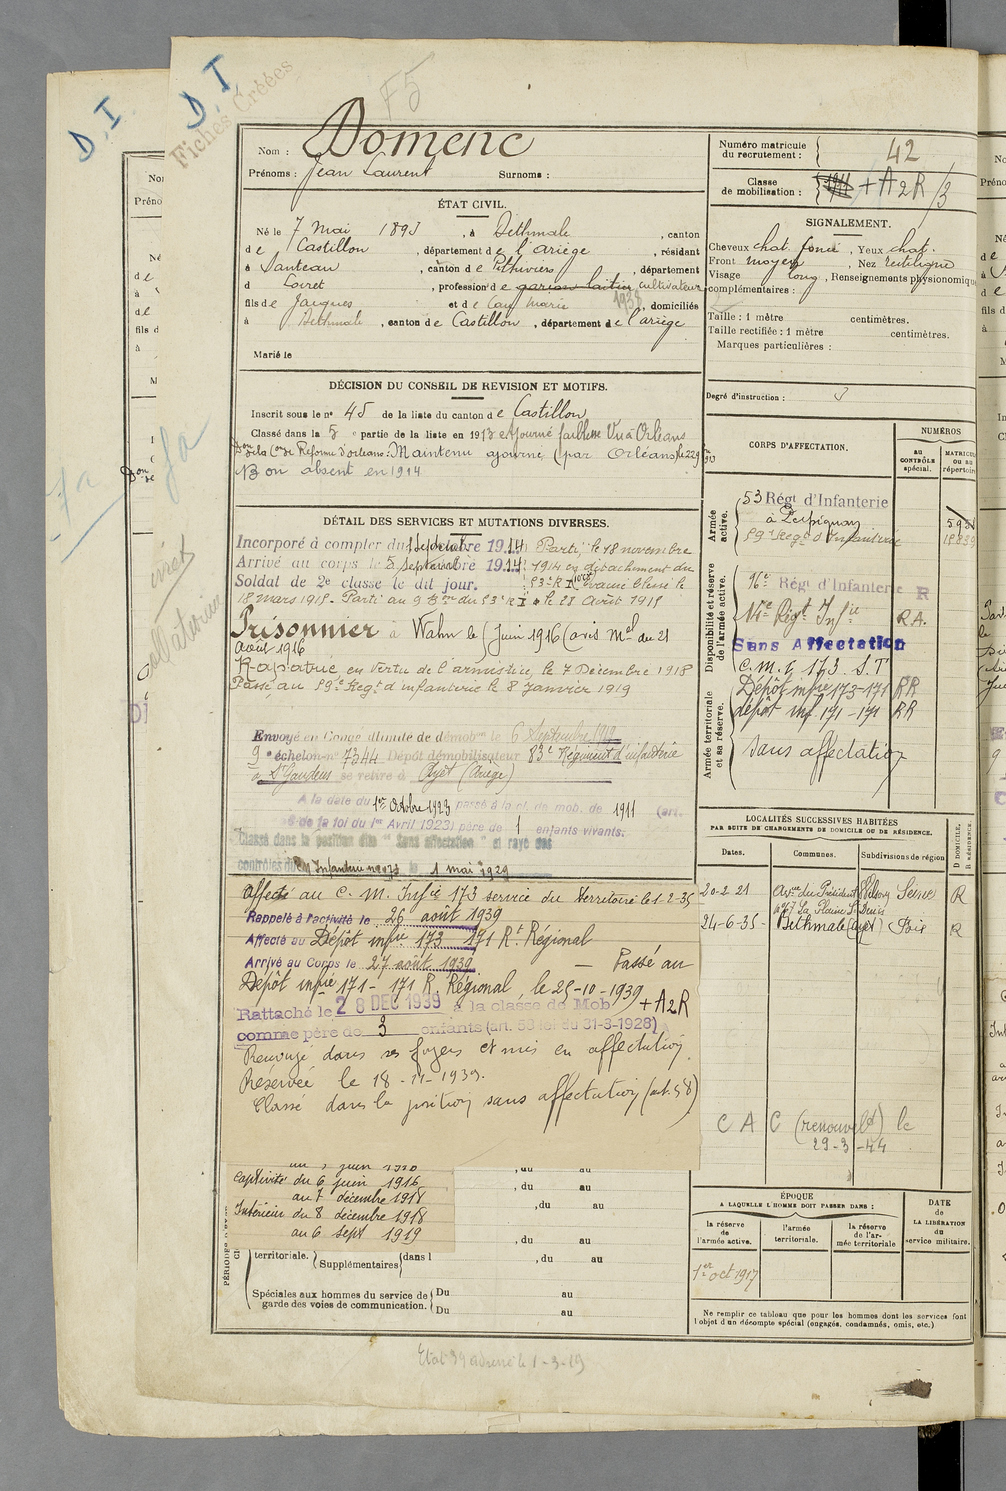 D.I
D.I
Fiches Créées
F5
Nom : Domenc
Prénoms : Jean Laurent Surnoms :
Numéro matricule du recrutement : 42
Classe de mobilisation : 1911 + A2R /3
ÉTAT CIVIL.
Né le 7 Mai 1893, à Bethmale, canton
de Castillon, département de l'Ariège, résidant
à Santeau, canton de Pithiviers, département
d Loiret, profession de garçon laitier cultivateur
fils de Jacques et de Cau Marie 1938, domiciliés
à Bethmale, canton de Castillon, département de l'ariège
Marié le
SIGNALEMENT.
Cheveux chat. foncé, Yeux chat.
Front moyen, Nez rectiligne
Visage long, Renseignements physionomiques
complémentaires :
Taille : 1 mètre centimètres.
Taille rectifiée : 1 mètre centimètres.
Marques particulières :
Degré d'instruction : 3
DÉCISION DU CONSEIL DE REVISION ET MOTIFS.
Inscrit sous le no 45 de la liste du canton de Castillon
Classé dans la 5e partie de la liste en 1913 ajourné faiblesse Vu à Orléans
Don de la Con de Réforme d'orléans: Maintenu ajourné (par Orléans) le 22 9bre 1913
Bon absent en 1914
DÉTAIL DES SERVICES ET MUTATIONS DIVERSES.
Incorporé à compter du 1 Septembre 1914 Parti le 18 novembre
Arrivé au corps le 5 Septembre 1914 1914 en détachement du
Soldat de 2e classe le dit jour. 53e R I Évacué blessé le
18 mars 1915. Parti au 9 Bon du 53e R I le 21 Août 1915
Prisonnier à Wahn le 6 Juin 1916 (avis Mel du 21
août 1916
Rapatrié en vertu de l'armistice, le 7 Décembre 1918
Passé au 59e Regt d'infanterie le 8 Janvier 1919
Envoyé en Congé illimité de démobon le 6 Septembre 1919
9e échelon no 7344 Dépôt démobilisateur 83e Régiment d'infanterie
à St Gaudens se retire à Ayet (Ariège)
A la date du 1er Octobre 1923 passé à la cl. de mob. de 1911 (art.
de la loi du 1er Avril 1923) père de 1 enfants vivants.
Classé dans la position dite "Sans affectation" et rayé des
contrôles du CM Infanterie no 173 le 1 mai 1929
affecté au C. M. Infie 173 service du Territoire le 1-2-35
Rappelé à l'activité le 26 août 1939
Affecté au Dépôt infie 173 171 Rt Régional
Arrivé au Corps le 27 août 1939 — Passé au
Dépôt infie 171 - 171 R. Régional, le 25-10-1939
Rattaché le 28 DEC 1939 à la classe de Mob +A2R
comme père de 3 enfants (art. 58 loi du 31-3-1928)
Renvoyé dans ses foyers et mis en affectation
Réservée le 18-11-1939.
Classé dans la position sans affectation (art. 58)
captivité du 6 juin 1916
au 7 décembre 1918
Intérieur du 8 décembre 1918
au 6 sept 1919
territoriale. Supplémentaires dans l
, du au
, du au
, du au
, du au
, du au
Spéciales aux hommes du service de garde des voies de communication. Du au
Du au
CORPS D'AFFECTATION.
NUMÉROS
AU CONTRÔLE spécial.
MATRICULE OU AU répertoire
Armée active.
53 Régt d'Infanterie
à Perpignan
59e Regt d'Infanterie
Disponibilité et réserve de l'armée active.
96e Régt d'Infanterie R
14e Régt Infie RA.
Sans Affectation
Armée territoriale et sa réserve.
C.M.I. 173 S.T
Dépôt infie 173-171 RR
dépôt inf. 171-171 RR
sans affectation
LOCALITÉS SUCCESSIVES HABITÉES
PAR SUITE DE CHANGEMENTS DE DOMICILE OU DE RÉSIDENCE.
Dates. Communes. Subdivisions de région D DOMICILE. R RÉSIDENCE.
20-2-21 Ave du Président Wilson Seine R
La Plaine St Denis
24-6-35- Bethmale (Ayet) Foix R
C A C (renouvelt) le
29-3-44
ÉPOQUE
A LAQUELLE L'HOMME DOIT PASSER DANS :
la réserve de l'armée active.
l'armée territoriale.
la réserve de l'armée territoriale
DATE de LA LIBÉRATION du service militaire.
1er oct 1917
Ne remplir ce tableau que pour les hommes dont les services font
l'objet d'un décompte spécial (engagés, condamnés, omis, etc.)
Etat 39 adressé le 1-3-19